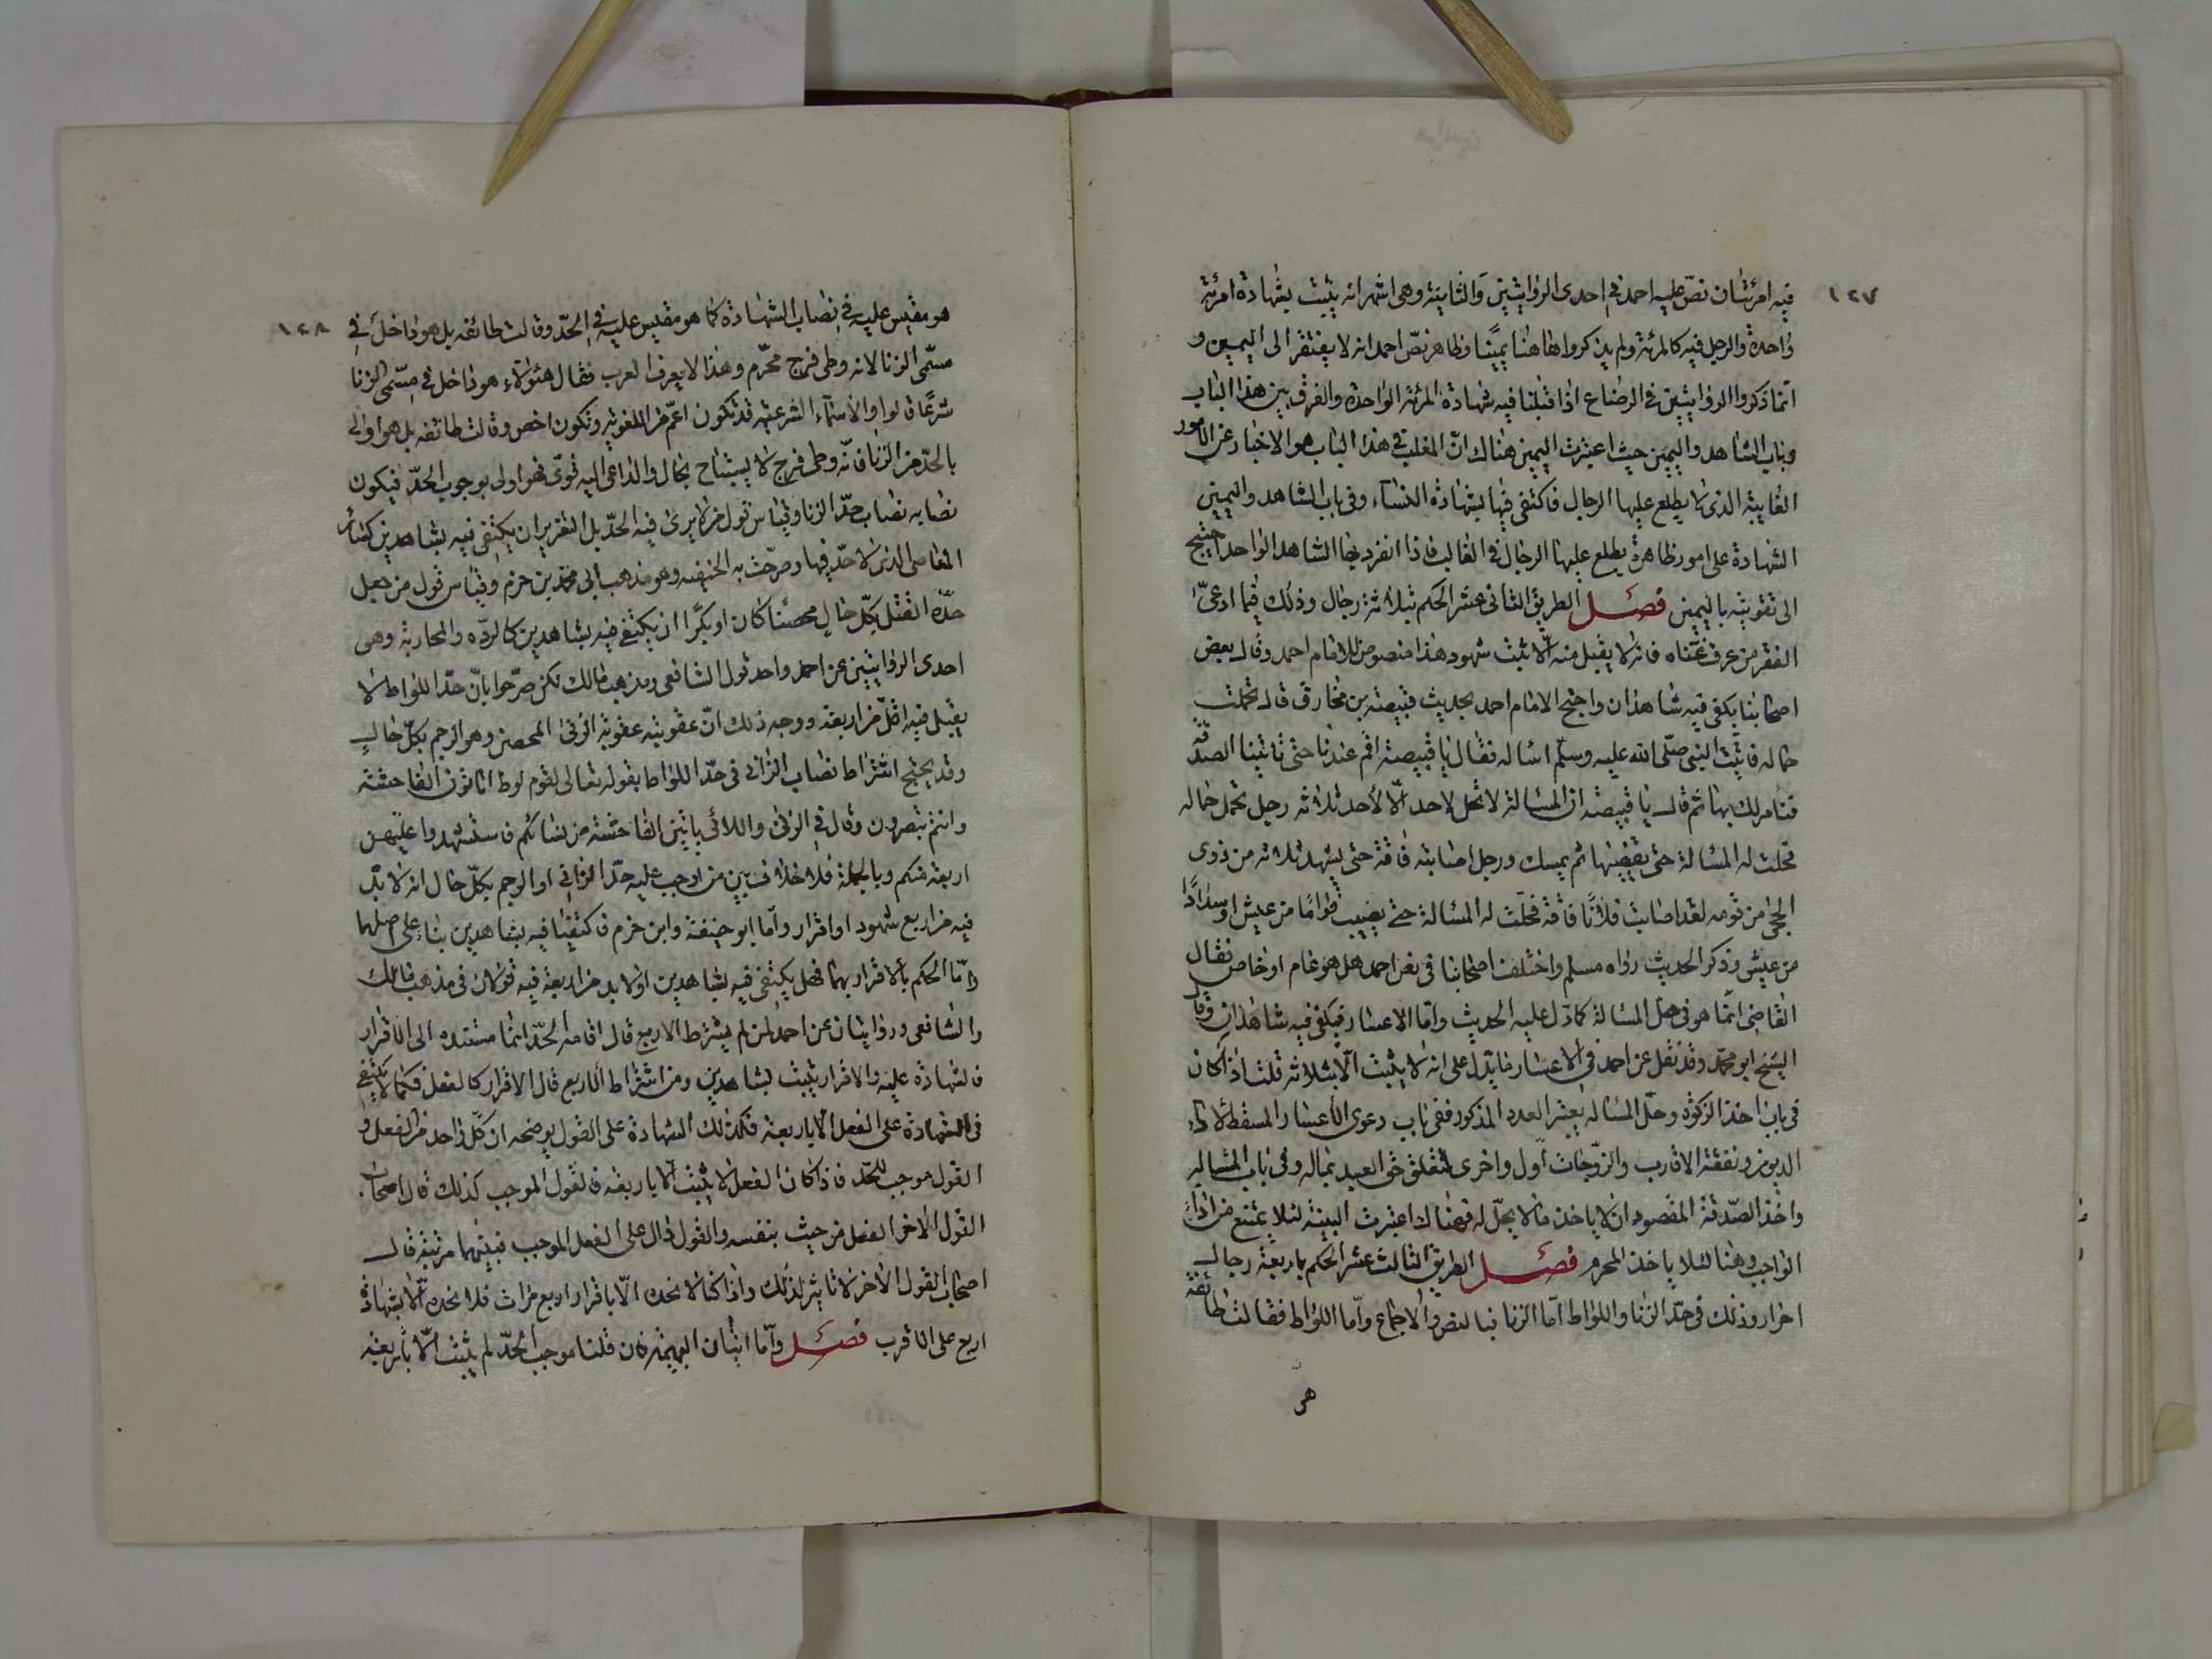 ١٢٧
فيه امرئتان نصّ عليه احمد في احدى الروايتين والثانية وهى اشهر انه يثبت بشهادة امرئة
واحدة والرجل فيه كالمرئة ولم يذكروا هاهنا يمينًا وظاهر نصّ احمد انه لا يفتقر الى اليمين و
انما ذكروا الروايتين في الرضاع اذا قبلنا فيه شهادة المرئة الواحدة والفرق بين هذا الباب
وباب الشاهد واليمين حيث اعتبرت اليمين هناك انّ المغلب في هذا الباب هو الاخبار عن الامور
الغايبة الذى لا يطلع عليها الرجال فاكتفى فيها بشهادة النساء وفى باب الشاهد واليمين
الشهادة على امور ظاهرة يطلع عليها الرجال في الغالب فاذا انفرد بها الشاهد الواحد احتيج
الى تقويته باليمين فصل الطريق الثانى عشر الحكم بثلاثة رجال وذلك فيما ادعىّ
الفقر من عرف غناه فانه لا يقبل منه الّا ثلث شهود هذا منصوص الامام احمد وقال بعض
اصحابنا يكفى فيه شاهدان واحتج الامام احمد بحديث قبيصة بن مخارق قال تحملت
حمالة فاتيت النبى صلّى الله عليه وسلّم اسأله فقال يا قبيصة اقم عندنا حتى تاتينا الصدقة
فنأمر لك بها ثم قال يا قبيصة ان المسالة لا تحل لاحد الّا لأحد ثلاثه رجل تحمل حمالة
فحلت له المسالة حتى يقضيها ثم يمسك ورجل اصابته فاقة حتى يشهد ثلاثه من ذوى
الحجى من قومه لقد اصابت فلانًا فاقة فحلّت له المسالة حتى يصيب قوامًا من عيش او سدادًا
من عيش وذكر الحديث رواه مسلم واختلف اصحابنا في نص احمد هل هو عام او خاص فقال
القاضى انّما هو في حل المسالة كما دّل عليه الحديث وامّا الاعسار فيكفى فيه شاهدان وقال
الشيخ ابو محمّد وقد نقل عن احمد في الاعسار ما يدّل على انه لا يثبت الّا بثلاثه قلت اذا كان
في باب اخذ الزكوة وحلّ المسالة يعتبر العدد المذكور ففى باب دعوى الاعسار المسقط لاداء
الديون ونفقة الاقارب والزّوجات اولى واخرى لتعلق حق العبد بماله وفى باب المسالة
واخذ الصّدقة المقصود ان لا ياخذ مالا يحلّ له فهناك اعتبرت البينة لئلا يمتنع من اداء
الواجب وهنا لئلا ياخذ المحرم فصل الطريق الثالث عشر الحكم باربعة رجال
احرار وذلك في حدّ الزنا واللواط امّا الزنا فبالنص والاجماع وامّا اللواط فقالت طائفة
هو
١٢٨
هو مقيس عليه في نصاب الشهادة كما هو مقيس عليه في الحدّ وقالت طائفه بل هو داخل في
مسّمى الزنا لانه وطى فرج محرّم وهذا لا يعرفه العرب فقال هئولاء هو داخل في مسّمى الزنا
شرعًا قالوا والاسماء الشرعيّه قد تكون اعمّ من اللغوية وتكون اخص وقالت طائفه بل هو اولى
بالحدّ من الزنا فانّه وطى فرج لا يستباح بحال والداعى اليه قوىّ فهو اولى بوجوب الحدّ فيكون
نصابه نصاب حدّ الزنا وقياس قول من لا يرى فيه الحدّ بل التعزير ان يكتفى فيه بشاهدين كسائر
المعاصى الذى لا حدّ فيها وصرّحت به الحنيفه وهو مذهب ابى محمّد بن حزم وقياس قول من جعل
حدّه القتل بكلّ حال محصنا كان او بكرًا ان يكتفى فيه بشاهدين كالردّه والمحاربة وهى
احدى الروايتين عن احمد واحد قول الشافعى ومذهب مالك لكن صرّحوا بانّ حدّ اللواط لا
يقبل فيه اقلّ من اربعة ووجه ذلك انّ عقوبته عقوبة الزنى المحصن وهو الرجم بكلّ حالٍ
وقد يحتج اشتراط نصاب الزانى في حدّ اللواط بقوله تعالى لقوم لوط اتاتون الفاحشة
وانتم تبصرون وقال في الزنى واللائى ياتين الفاحشة من نسائكم فاستشهدوا عليهن
اربعة منكم وبالجملة فلا خلاف بين من اوجب عليه حدّ الزانى او الرجم بكلّ حال انه لا بّد
فيه من اربع شهود او اقرار وامّا ابو حنيفة وابن حزم فاكتفيا فيه بشاهدين بناء على اصلهما
وامّا الحكم بالاقرار بهما فهل يكتفى فيه بشاهدين او لا بد من اربعة فيه قولان في مذهب مالك
والشافعى وروايتان عن احمد فمن لم يشترط الاربع قال اقامة الحدّ انما مستنده الى الاقرار
فالشهادة عليه والاقرار يثبت بشاهدين ومن اشتراط الاربع قال الاقرار كالفعل فكما لا يكتفى
في الشهادة على الفعل الّا باربعة فكذلك الشهادة على القول يوضحه ان كلّ واحد من الفعل و
القول موجب للحدّ فاذا كان الفعل لا يثبت الّا باربعة فالقول الموجب كذلك قال اصحاب
القول الاخر الفعل من حيث بنفسه والقول دال على الفعل الموجب فبينهما مرتبة قال
اصحاب القول الاخر لا تاثير لذلك واذا كنا لا نحده الّا باقرار اربع مرات فلا نحده الّا بشهادة
اربع على الاقرب فصل وامّا اتيان البهيمة فان قلنا موجب الحدّ لم يثبت الّا باربعه